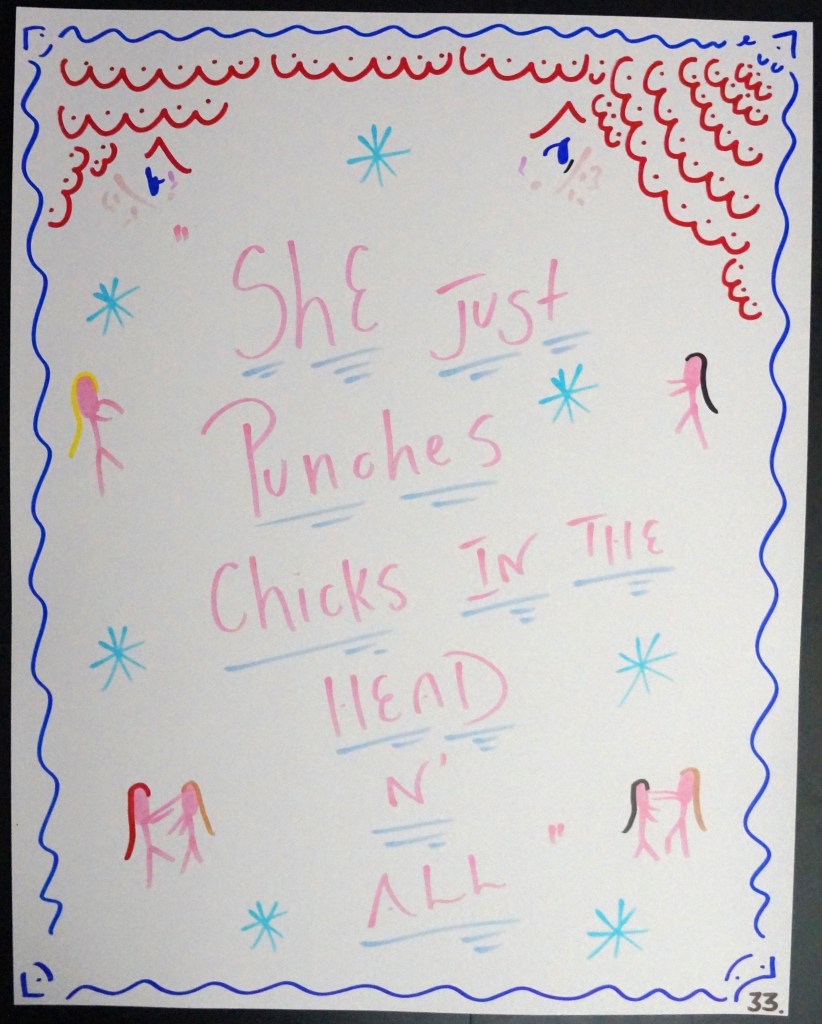 "SHE JUST
PUNCHES
CHICKS IN THE
HEAD
N'
ALL"
33.